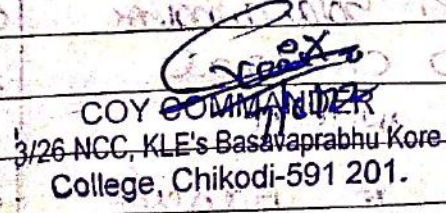 COY COMMANDER
3/26 NCC, KLE's Basavaprabhu Kore
College, Chikodi-591 201.